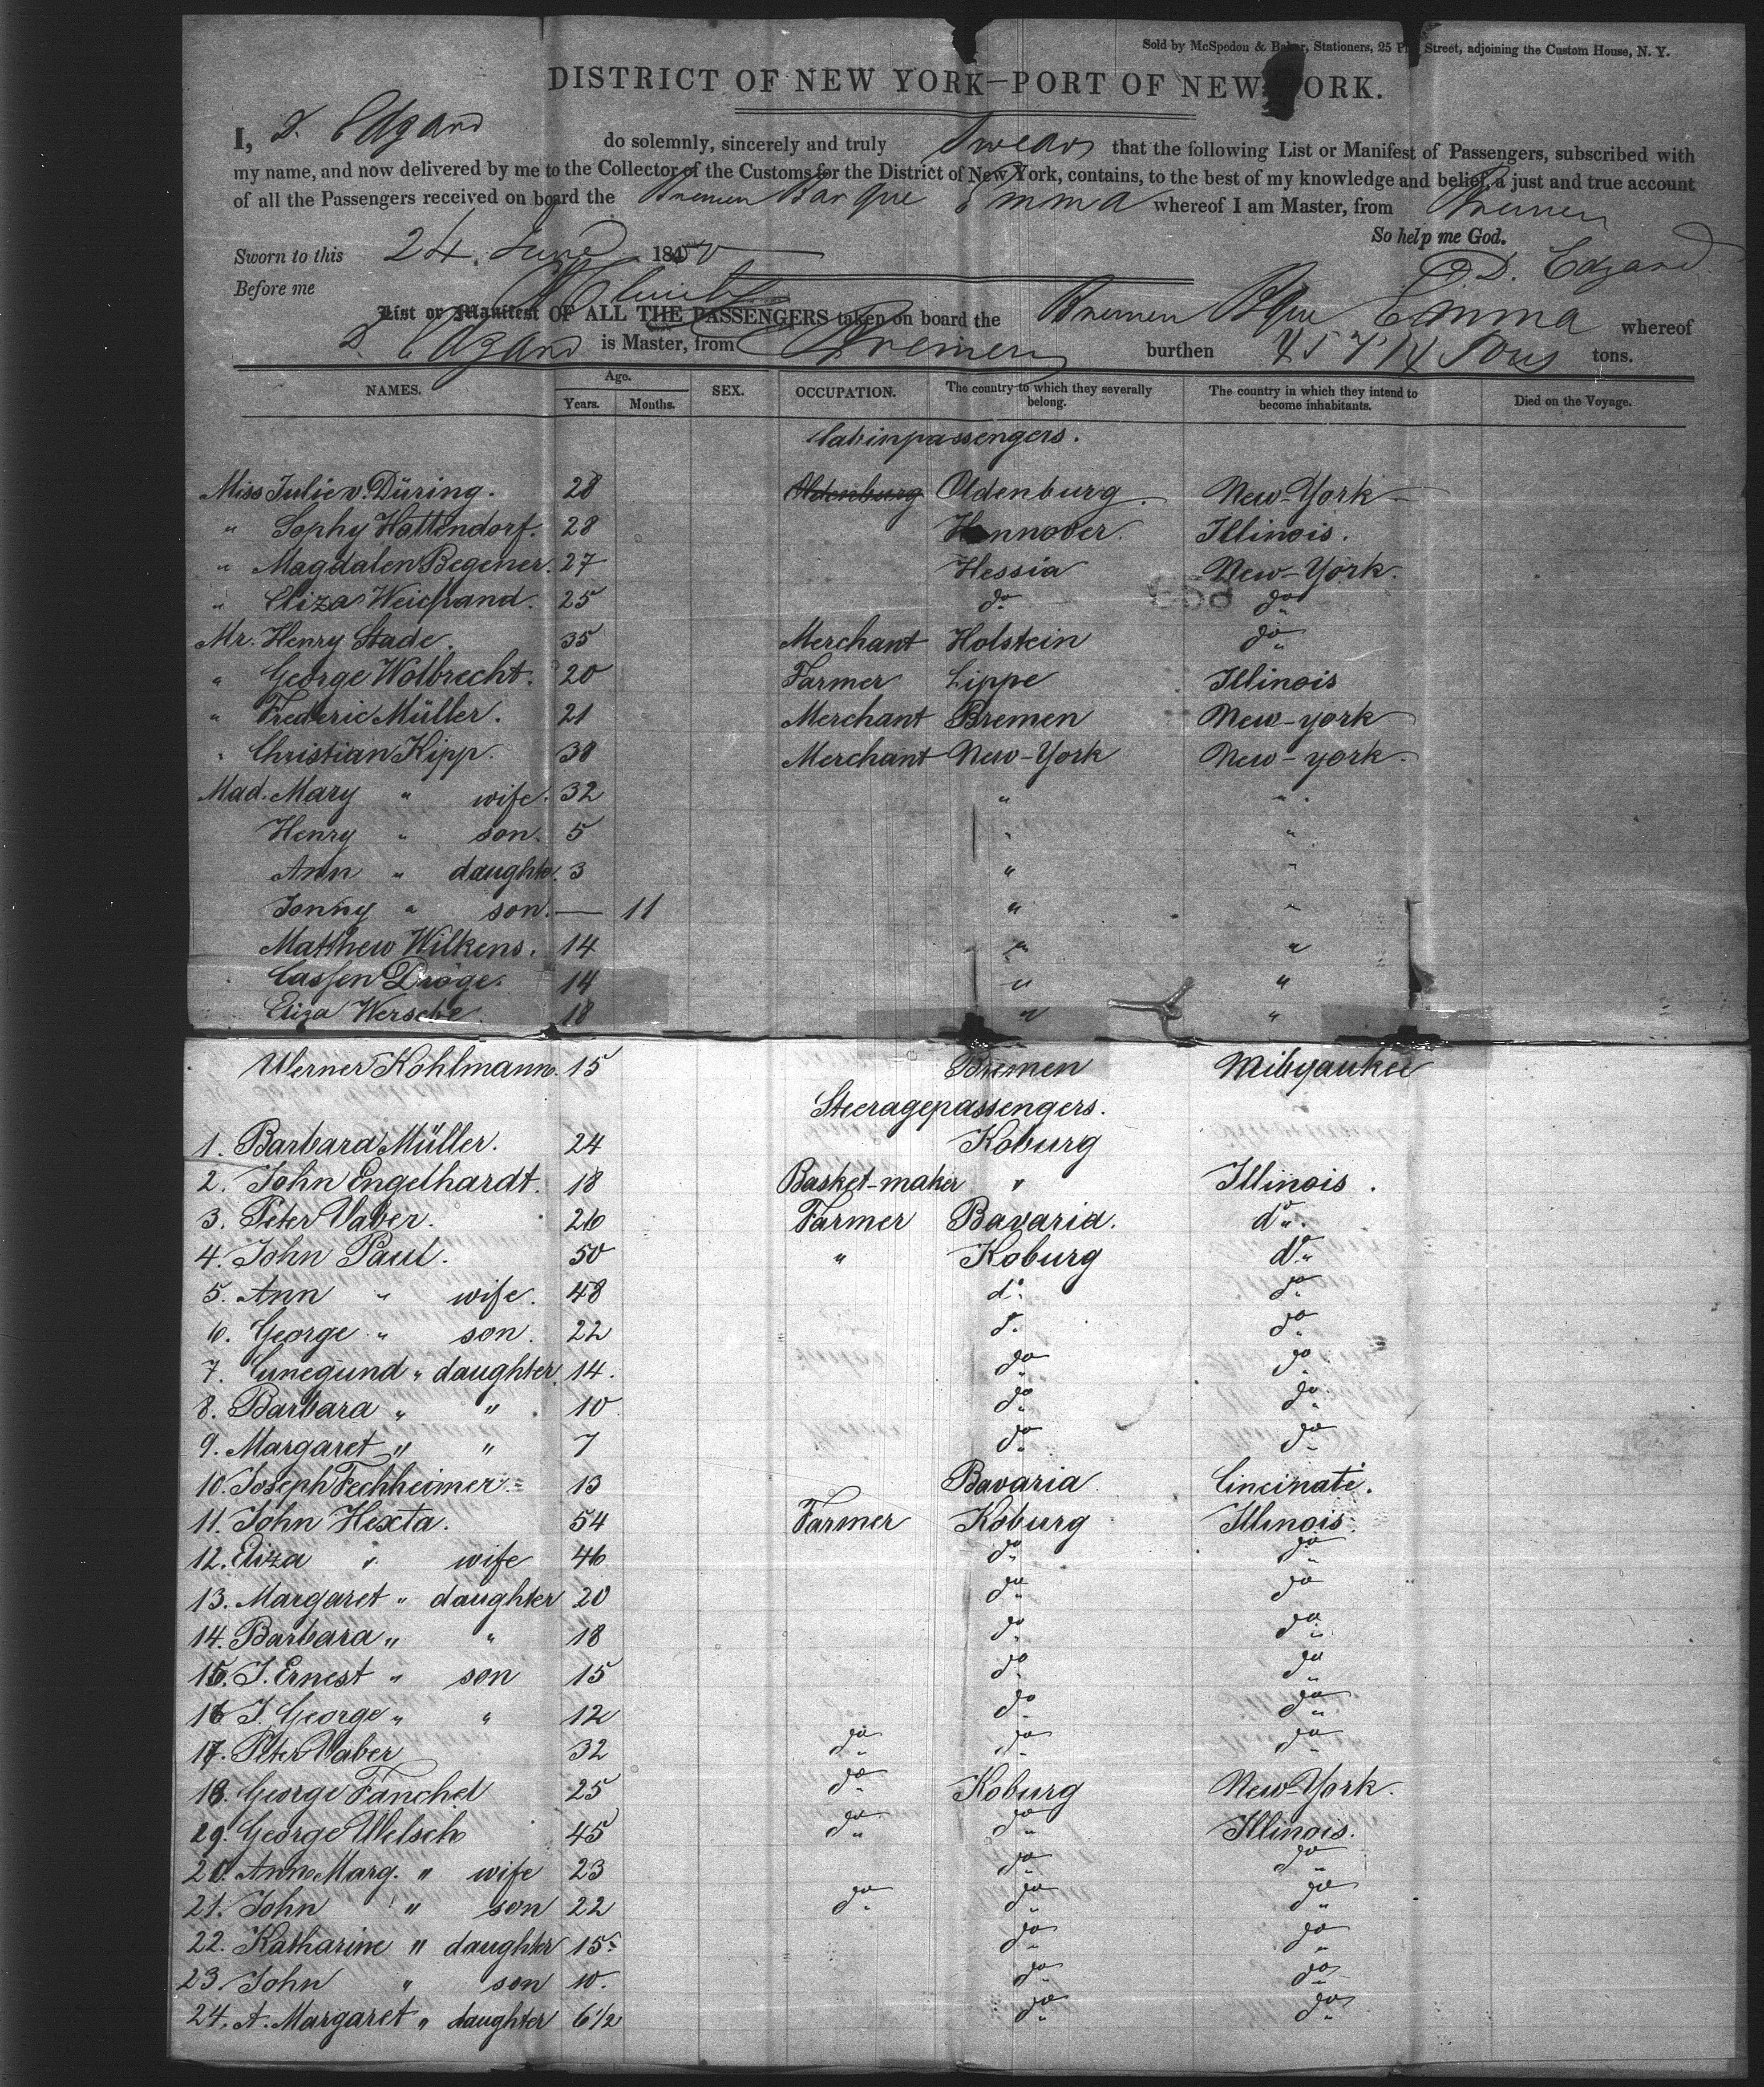 Sold by McSpedon & Baker, Stationers, 25 Street, adjoining the Custom House, N. Y.
DISTRICT OF NEW YORK—PORT OF NEW ORK.
I, D. Edzard do solemnly, sincerely and truly swear that the following List or Manifest of Passengers, subscribed with
my name, and now delivered by me to the Collector of the Customs for the District of New York, contains, to the best of my knowledge and belief, a just and true account
of all the Passengers received on board the Bremen Barque Emma whereof I am Master, from Bremen
So help me God.
Sworn to this 24 June 1850 D. Edzard
Before me
List or Manifest OF ALL THE PASSENGERS taken on board the Bremen Bque Emma whereof
D. Edzard is Master, from Bremen burthen Tons tons.
NAMES. Age. Years. Months. SEX. OCCUPATION. The country to which they severally belong. The country in which they intend to become inhabitants. Died on the Voyage.
Cabinpassengers.
Miss Julie v. Düring. 28 Oldenburg Oldenburg. New-York
" Sophy Hattendorf. 28 Hannover. Illinois.
" Magdalen Begener. 27 Hessia New-York.
" Eliza Weichand. 25 do do
Mr. Henry Stade. 35 Merchant Holstein do
" George Wolbrecht. 20 Farmer Lippe Illinois
" Frederic Müller. 21 Merchant Bremen New-york
" Christian Kipp. 30 Merchant New-York New-york.
Mad. Mary " wife. 32 " "
Henry " son. 5 " "
Ann " daughter. 3 " "
Jonny " son. — 11 " "
Matthew Wilkens. 14 " "
Cassen Dröge. 14 " "
Eliza Wersche. 18 " "
Werner Kohlmann. 15 Bremen Milwaukee
Steeragepassengers.
1. Barbara Müller. 24 Koburg
2. John Engelhardt. 18 Basket-maker " Illinois.
3. Peter Vaber. 26 Farmer Bavaria. do.
4. John Paul. 50 " Koburg do
5. Ann " wife. 48 do do
6. George " son. 22 do do
7. Cunegund " daughter. 14. do do
8. Barbara " " 10 do do
9. Margaret " " 7 do do
10. Joseph Fechheimer 13 Bavaria Cincinati.
11. John Hexta. 54 Farmer Koburg Illinois.
12. Eliza " wife 46 do do
13. Margaret " daughter 20 do do
14. Barbara " " 18 do do
15. J. Ernest " son 15 do do
16 J. George " " 12 do do
17. Peter Vaber 32 do do do
18. George Fanchel 25 do Koburg New-York.
19. George Welsch 45 do do Illinois.
20. Ann Marg. " wife 23 do do
21. John " son 22 do do do
22. Katharine " daughter 15 do do
23. John " son 10. do do
24. A. Margaret " daughter 6 1/2 do do